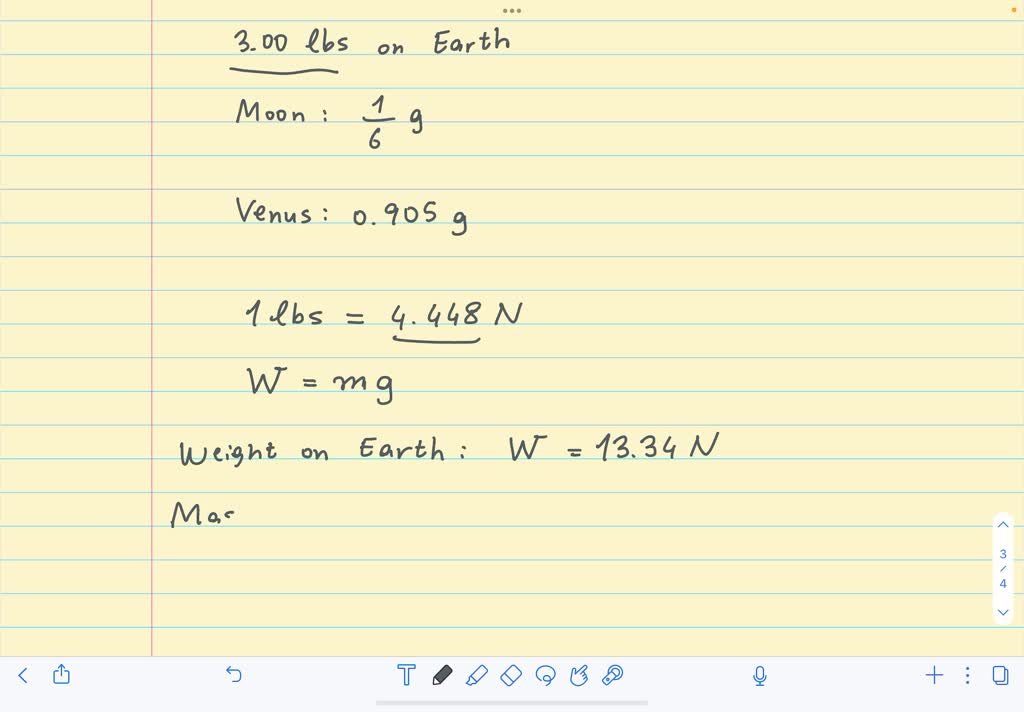 3.00 lbs on Earth
Moon: 1/6 g
Venus: 0.905 g
1 lbs = 4.448 N
W = mg
Weight on Earth: W = 13.34 N
Mas
3
/
4
T